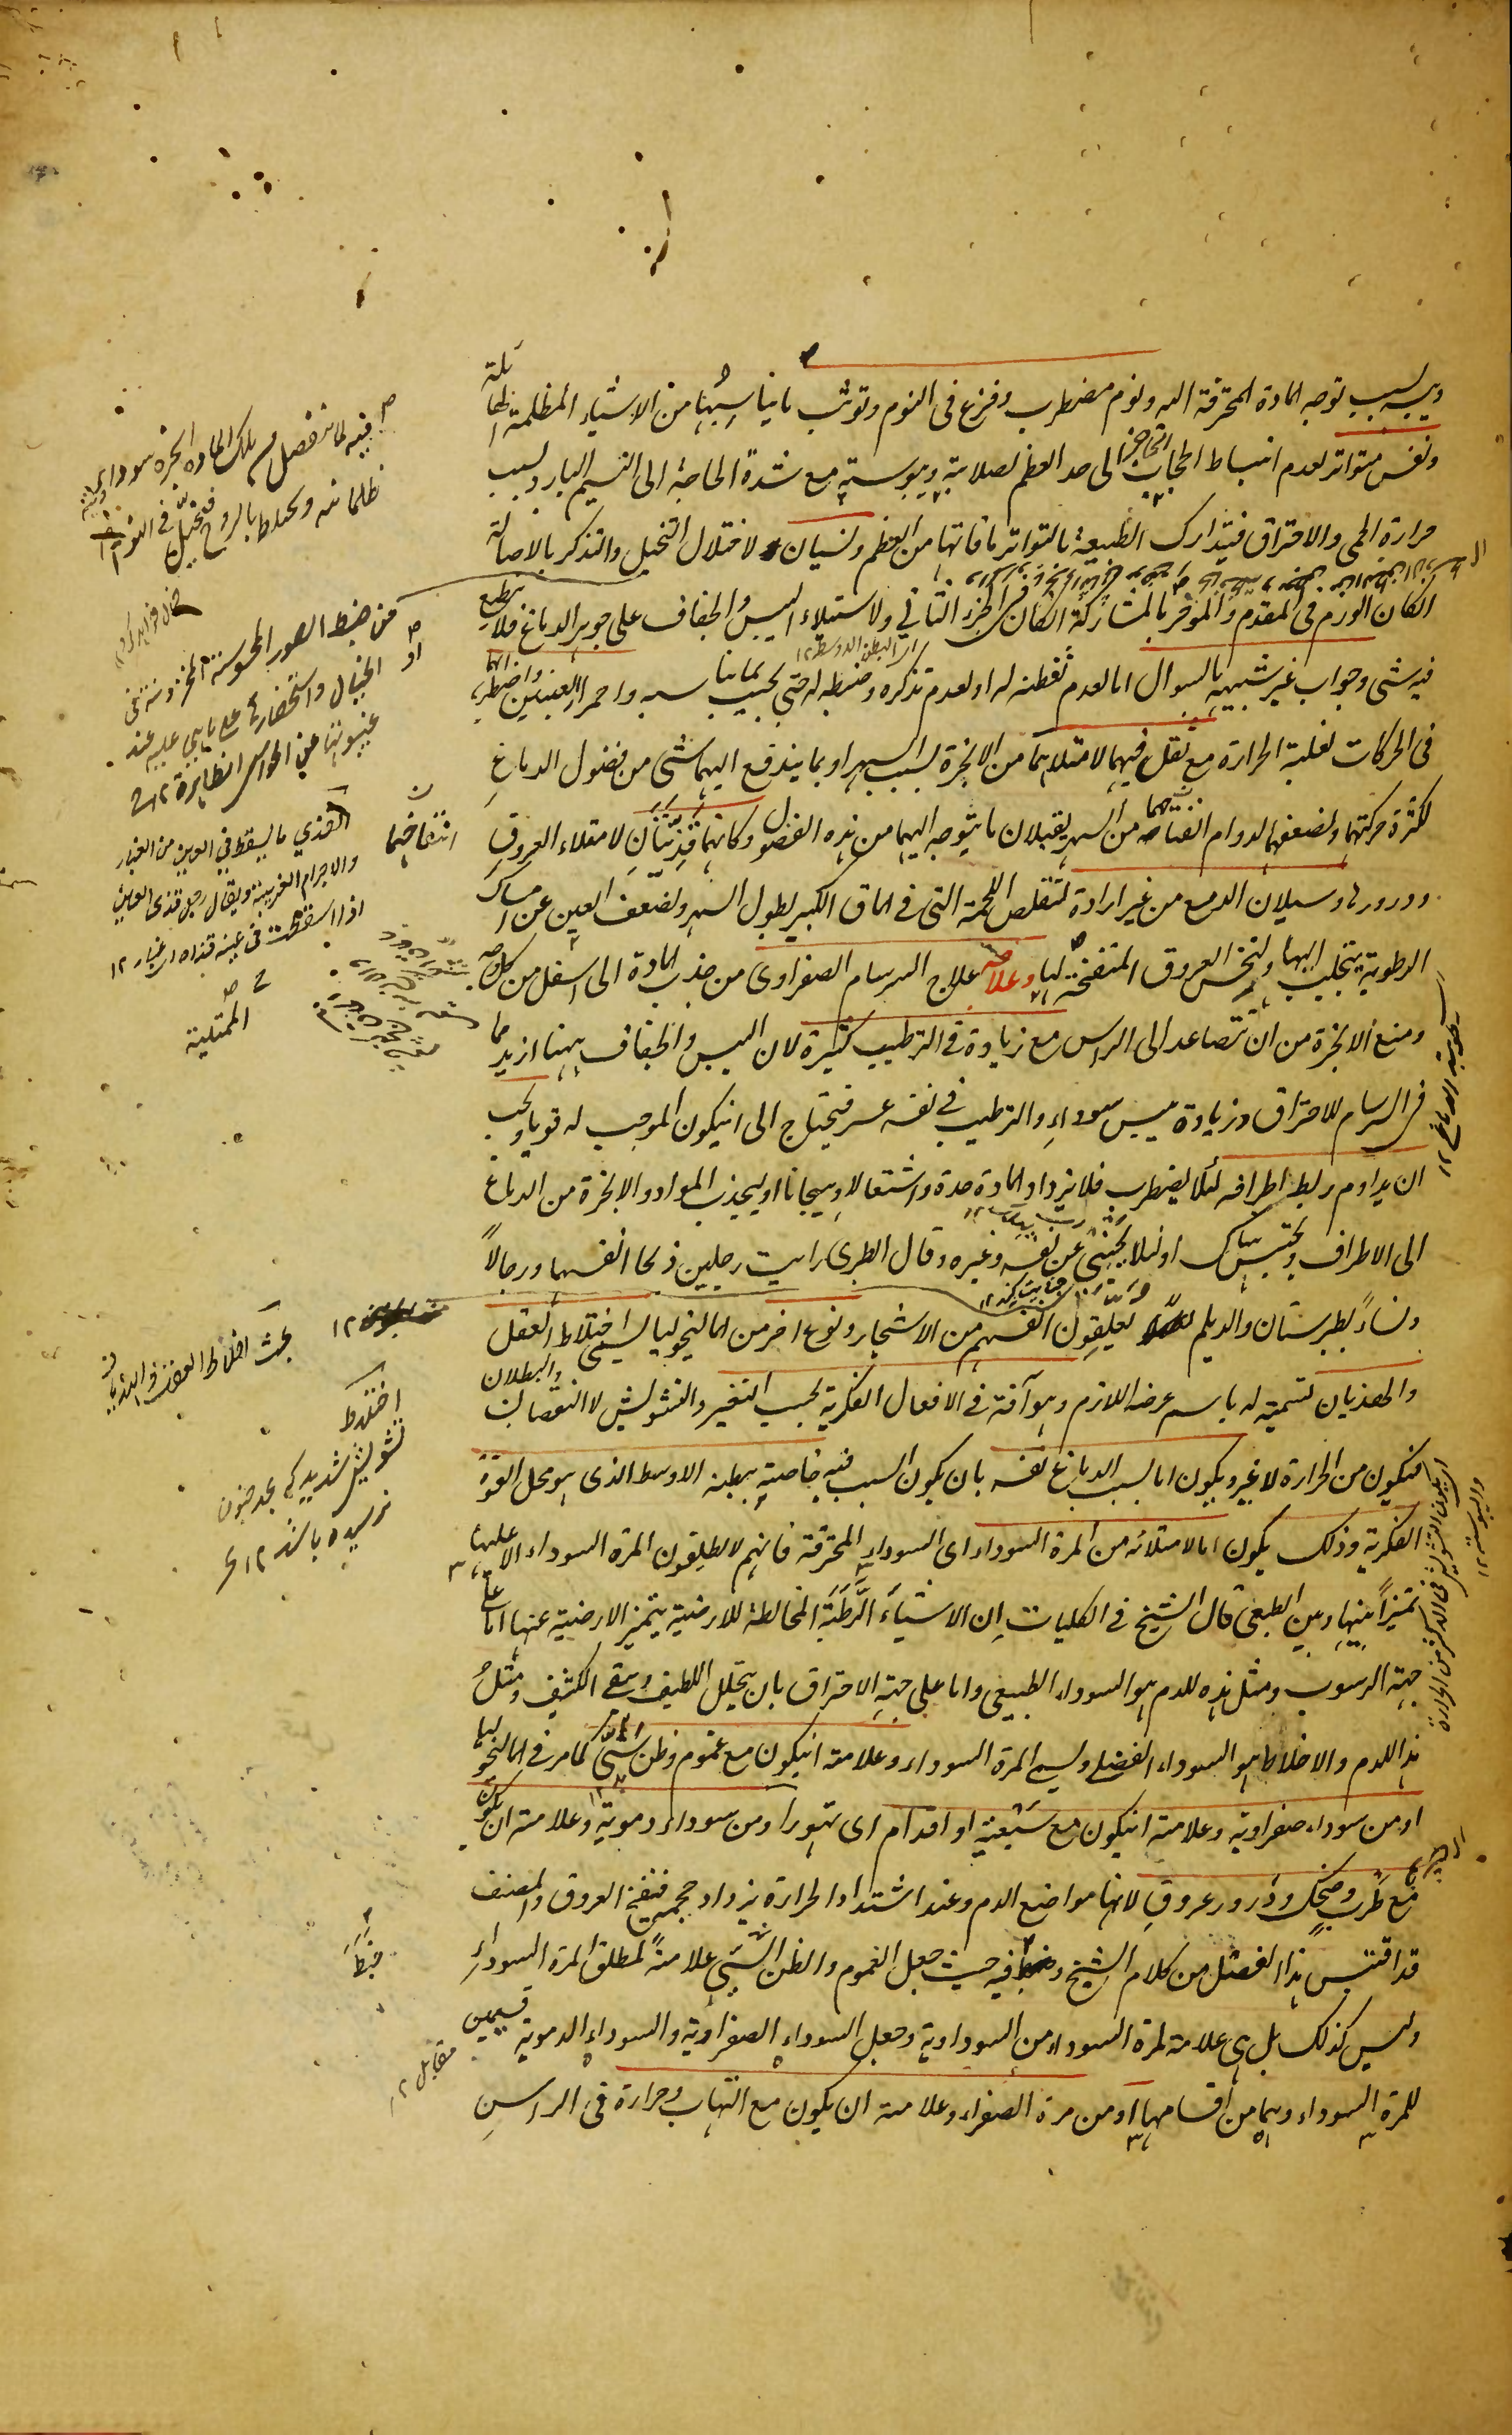 ويبسه بسبب توجه المادة المحترقة اليه ونوم مضطرب وفزع فى النوم وتوثب ما يناسبها من الاشياء المظلمة
ونفس متواتر لعدم انبساط الحجاب الحاجز الى حد العظم لصلابته ويبوسته مع شدة الحاجة الى النسيم البارد بسبب
حرارة الحمى والاحتراق فيتدارك الطبيعة بالتواتر ما فاتها من العظم ونسيان لاختلال التخيل والتذكر بالاصالة
انكان الورم فى المقدم والمؤخر بالمشاركة انكان فى الجزء الثانى ولاستيلاء اليبس والجفاف على جوهر الدماغ فلا ينطبع
فيه شى وجواب غير شبيه بالسوال اما لعدم تفطنه له او لعدم تذكره وضبطه له حتى يجيب بما يناسبه واحمرار العينين واضطرابهما
فى الحركات لغلبة الحرارة مع ثقل فيهما لامتلائهما من الابخرة بسبب السهر او بما يندفع اليهما شى من فضول الدماغ
لكثرة حركتهما ولضعفهما لدوام انفتاحهما من السهر يقبلان ما يتوجه اليهما من هذه الفضول وكانهما قذيتان لامتلاء العروق
ودرورها وسيلان الدمع من غير ارادة لتقلص اللحمة التى فى الماق الكبير لطول السهر ولضعف العين عن امساك
الرطوبة يتحلب اليها ولنخس العروق المنتفخة لها وعلاجه علاج السرسام الصفراوى من جذب المادة الى اسفل من كل
ومنع الابخرة من ان تتصاعد الى الراس مع زيادة فى الترطيب كثيرة لان اليبس والجفاف ههنا ازيد مما
فى السرسام للاحتراق وزيادة يبس سوداء والترطيب فى نفسه عسر فيحتاج الى انيكون الموجب له قويا ويجب
ان يداوم ربط اطرافه لئلا يضطرب فلا يزداد المادة حدة واشتعالا وهيجانا او ليجذب المواد والابخرة من الدماغ
الى الاطراف ويحتبس هناك او لئلا يجنى على نفسه وغيره وقال الطبرى رايت رجلين ذبحا انفسهما ورجالا
ونساء بطبرستان والديلم يعلقون انفسهم من الاشجار ونوع اخر من المالنخوليا يسمى اختلاط العقل
والهذيان لتسميته له باسم عرضه اللازم وهو آفة فى الافعال الفكرية بحسب التغير والتشويش لا النقصان والبطلان
فتكون من الحرارة لا غير ويكون اما بسبب الدماغ نفسه بان يكون السبب فيه خاصة ببطنه الاوسط الذى هو محل القوة
الفكرية وذلك يكون اما لامتلائه من المرة السوداء اى السوداء المحترقة فانهم لا يطلقون المرة السوداء الا عليها
تميزا بينها وبين الطبيعى قال الشيخ فى الكليات ان الاشياء الرطبة المخالطة للارضية يتميز الارضية عنها اما على
جهة الرسوب ومثل هذه للدم هو السوداء الطبيعى واما على جهة الاحتراق بان يتحلل اللطيف ويبقى الكثيف ومثل
هذا للدم والاخلاط هو السوداء الفضلى ويسمى المرة السوداء وعلامته انيكون مع غموم وظن سيى كما مر فى المالنخوليا
او من سوداء صفراوية وعلامته انيكون مع سبعية او اقدام اى تهور او من سوداء دموية وعلامته ان يكون
مع طرب وضحك ودرور عروق لانها مواضع الدم وعند اشتداد الحرارة يزداد حجمه فينفخ العروق والمصنف
قد اقتبس هذا الفصل من كلام الشيخ وخبط فيه حيث جعل الغموم والظن السيى علامة لمطلق المرة السوداء
وليس كذلك بل هى علامة لمرة السوداء من السوداوية وجعل السوداء الصفراوية والسوداء الدموية قسيمين
للمرة السوداء وهما من اقسامها او من مرة الصفراء وعلامته ان يكون مع التهاب وحرارة فى الراس
من ضبط الصور المحسوسة المخزونة فى
الخيال واستحضارها على ما هى عليه عند
غيبوبتها عن الحواس الظاهرة ١٢
انتفاخهما
القذى ما يسقط فى العين من الغبار
والاجرام الغريبة ويقال رجل قذى العين
اذا سقطت فى عينه قذاة اى غبار ١٢
الممتلية
بحث اختلاط العقل والهذيان
اختلاط
تشويش شديد كه بحد جنون
نرسيده باشد ١٢
خبط
مقابل ١٢